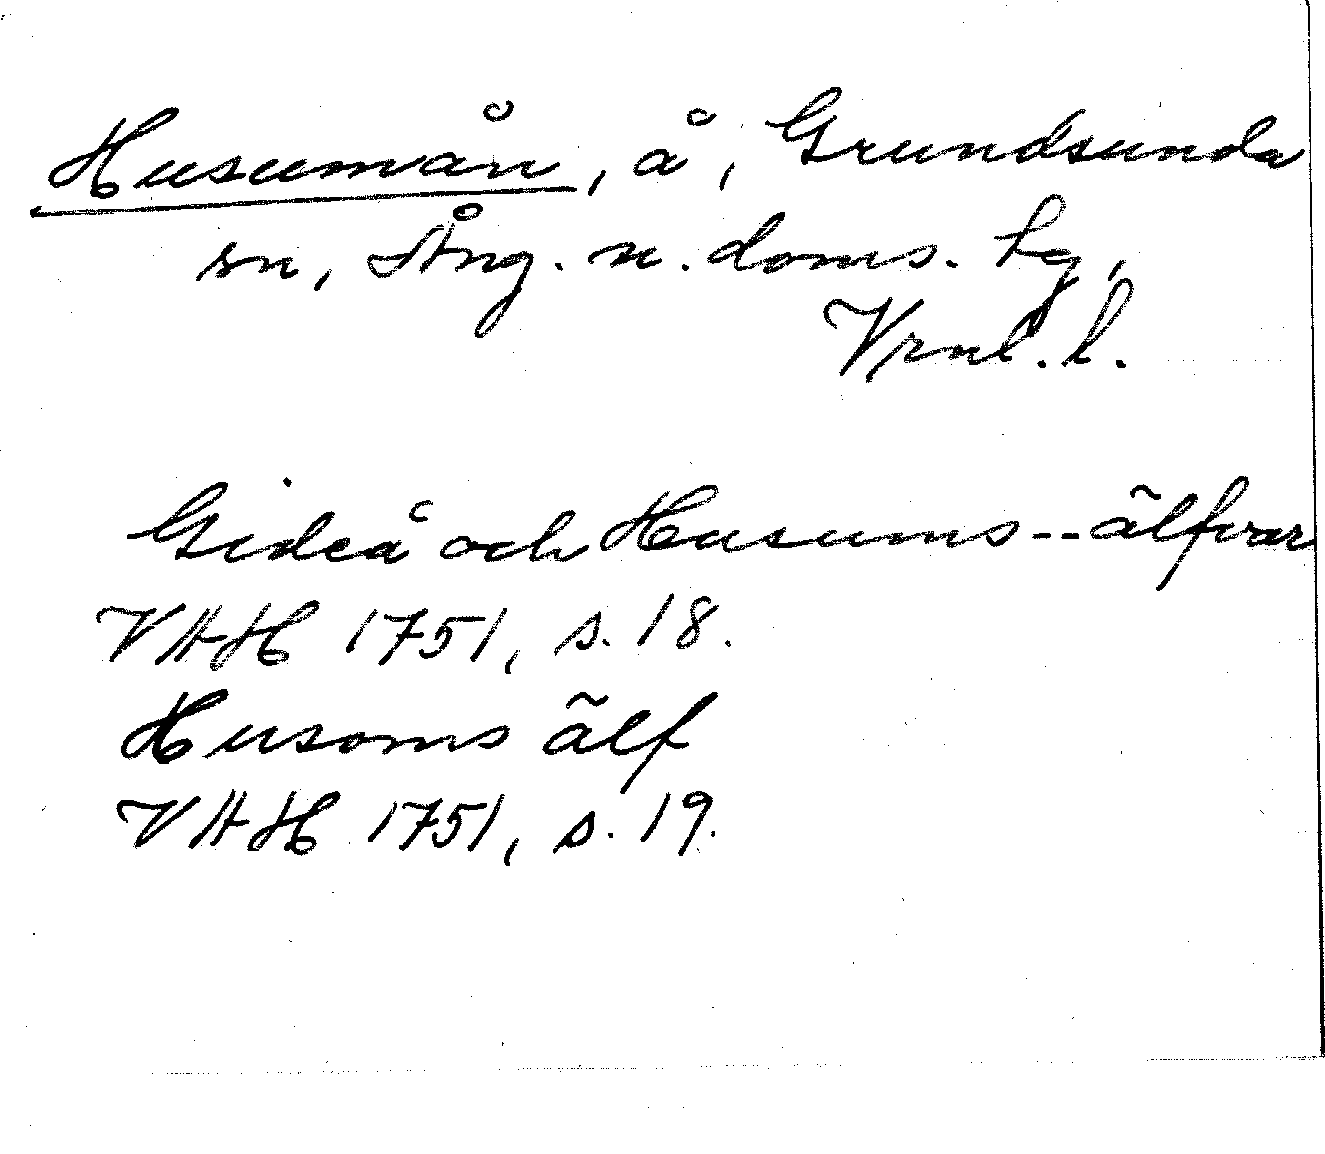 Husumån, å, Grundsunda
sn, Ång. n. doms. tg,
Vrnl. l.
Gideå och Husums -- älfvar
VAH 1751, s. 18.
Husoms älf
VAH 1751, s. 19.